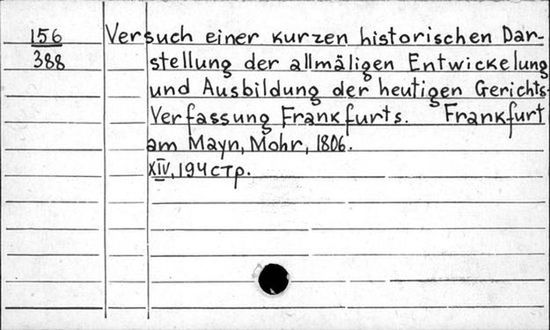 156
388
Versuch einer kurzen historischen Dar-
stellung der allmäligen Entwickelung
und Ausbildung der heutigen Gerichts-
Verfassung Frankfurts. Frankfurt
am Mayn, Mohr, 1806.
XIV, 194 стр.